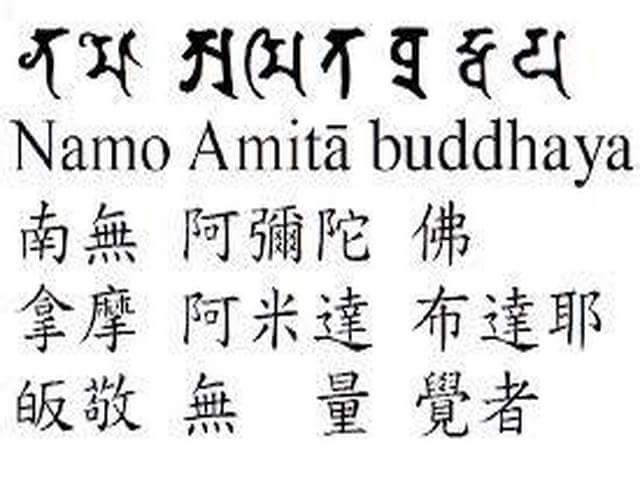 Namo Amitā buddhaya
南無 阿彌陀 佛
拿摩 阿米達 布達耶
皈敬 無 量 覺者